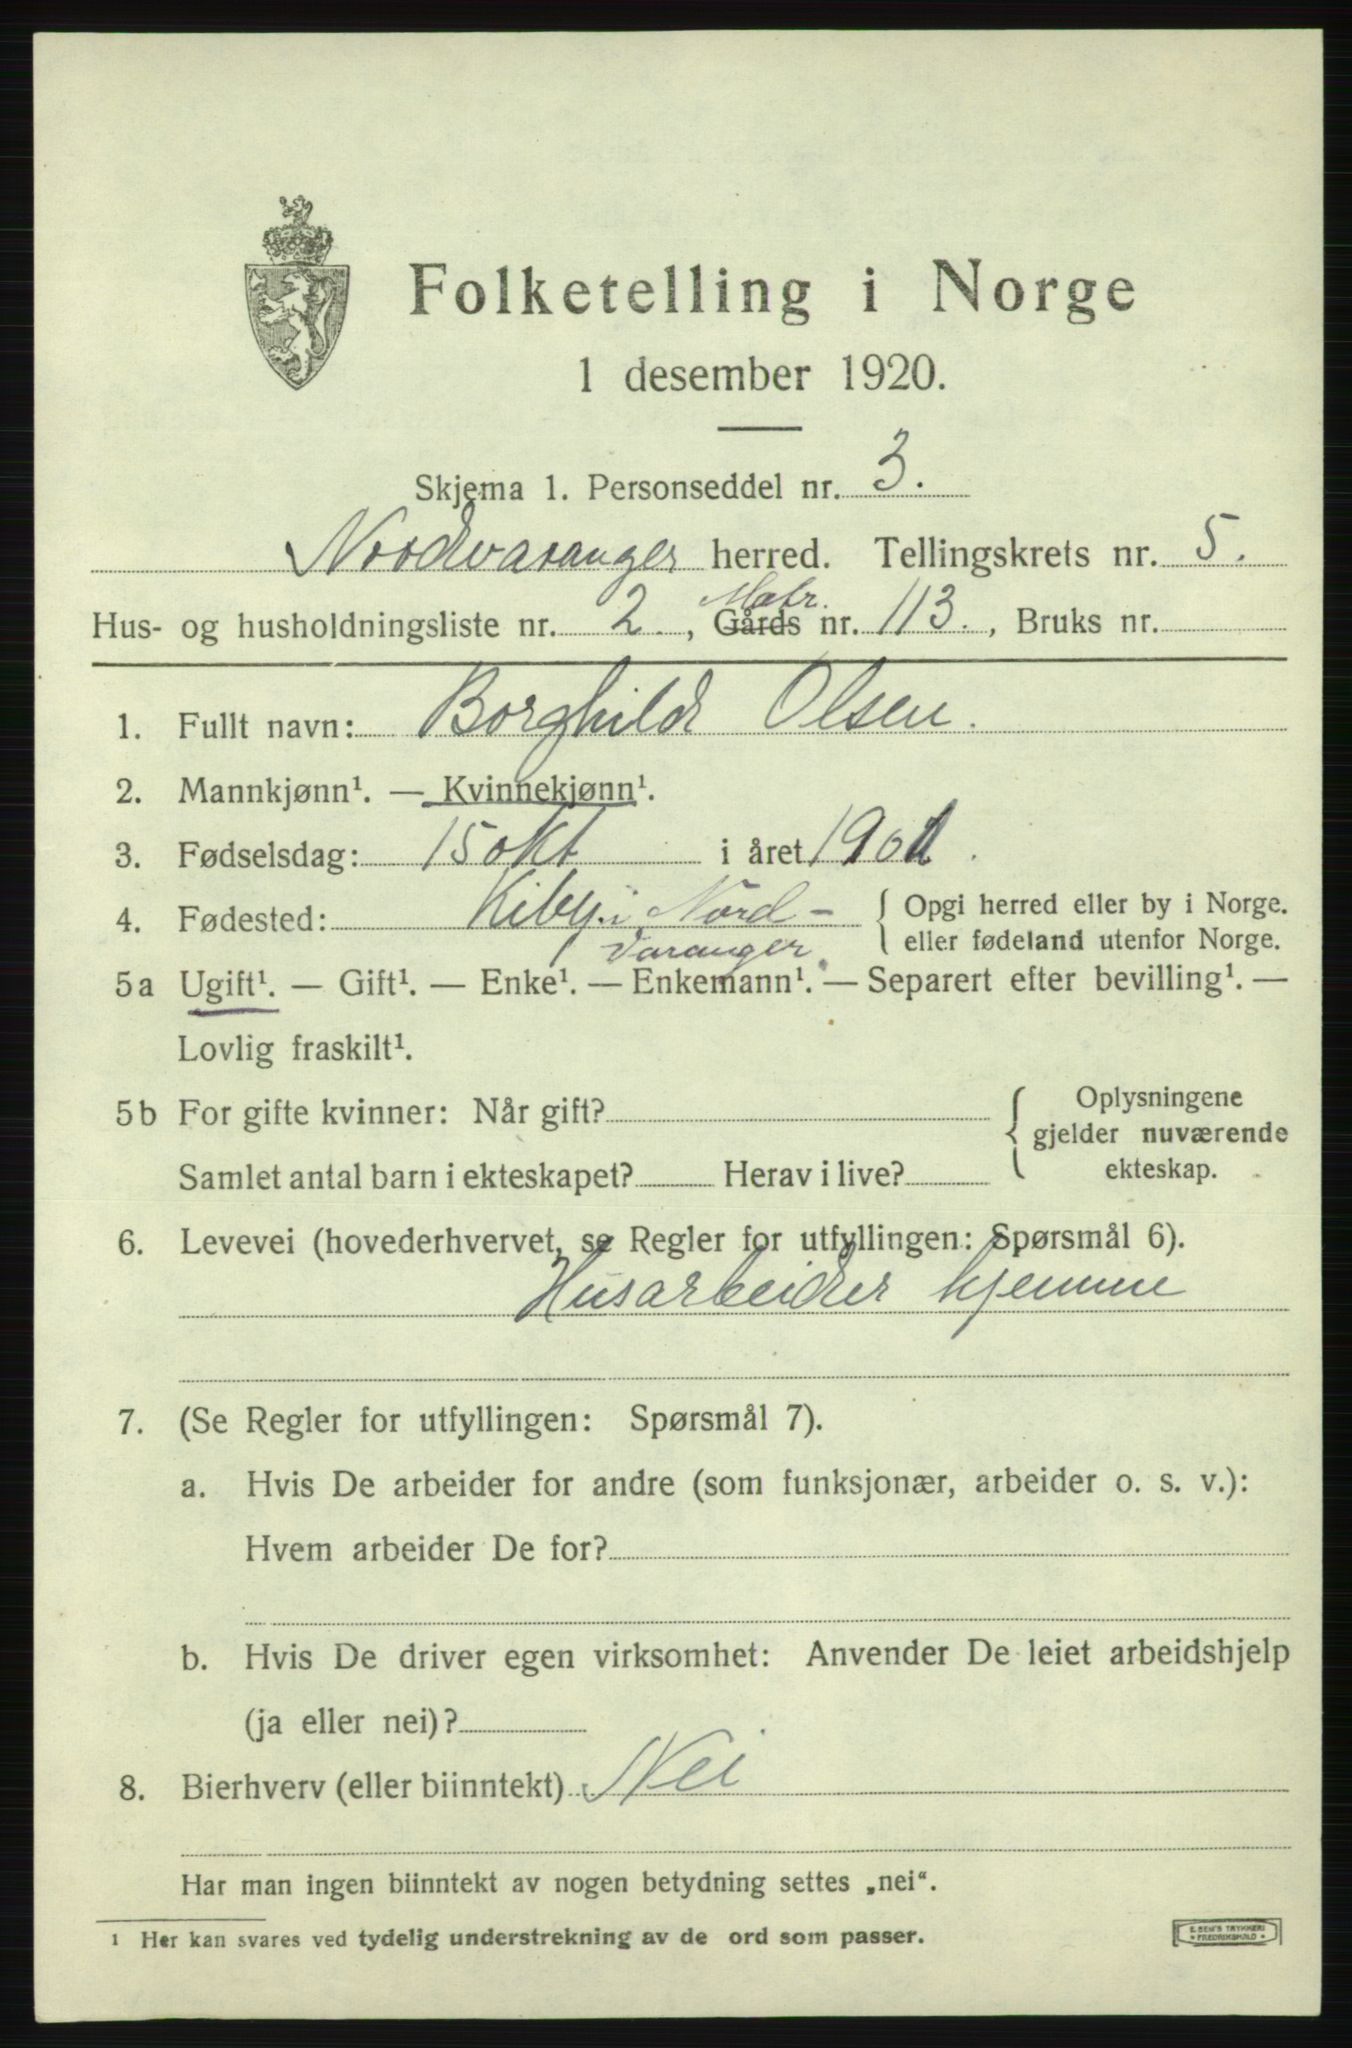 Folketelling i Norge
1 desember 1920.
Skjema 1. Personseddel nr. 3.
Nordvaranger herred. Tellingskrets nr. 5.
Hus- og husholdningsliste nr. 2., Gårds Matr. nr. 113., Bruks nr.
1. Fullt navn: Borghild Olsen.
2. Mannkjønn¹. — Kvinnekjønn¹.
3. Fødselsdag: 15 okt i året
4. Fødested: Kiby i Nord- { Opgi herred eller by i Norge.
Varanger. eller fødeland utenfor Norge.
5a Ugift¹. — Gift¹. — Enke¹. — Enkemann¹. — Separert efter bevilling¹. —
Lovlig fraskilt¹.
5b For gifte kvinner: Når gift? { Oplysningene
gjelder nuværende
Samlet antal barn i ekteskapet? Herav i live? ekteskap.
6. Levevei (hovederhvervet, se Regler for utfyllingen: Spørsmål 6).
Husarbeider hjemme
7. (Se Regler for utfyllingen: Spørsmål 7).
a. Hvis De arbeider for andre (som funksjonær, arbeider o. s. v.):
Hvem arbeider De for?
b. Hvis De driver egen virksomhet: Anvender De leiet arbeidshjelp
(ja eller nei)?
8. Bierhverv (eller biinntekt) Nei
Har man ingen biinntekt av nogen betydning settes „nei“.
¹ Her kan svares ved tydelig understrekning av de ord som passer.
E. SEM'S TRYKKERI
* FREDRIKSHALD *